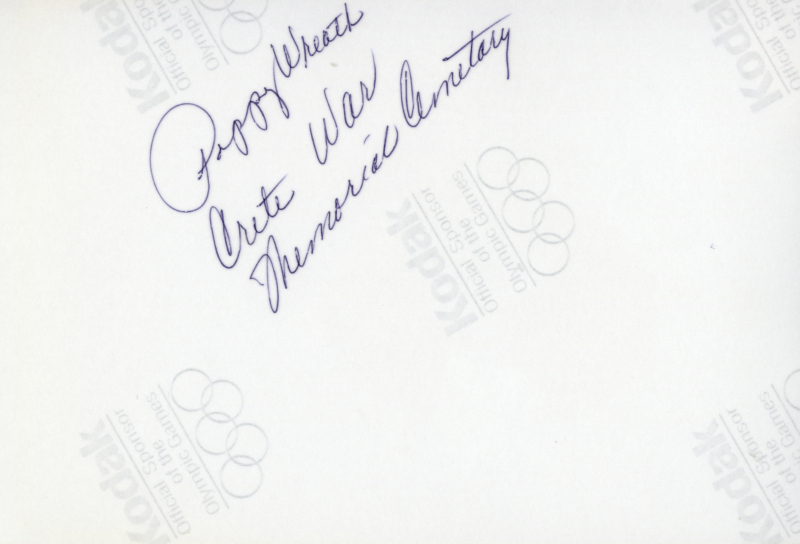 Poppy Wreath
Crete War
Memorial Cemetary
Kodak
Official Sponsor
of the
Olympic Games
Kodak
Official Sponsor
of the
Olympic Games
Kodak
Official Sponsor
of the
Olympic Games
Kodak
Official Sponsor
of the
Kodak
Official Sponsor
of the